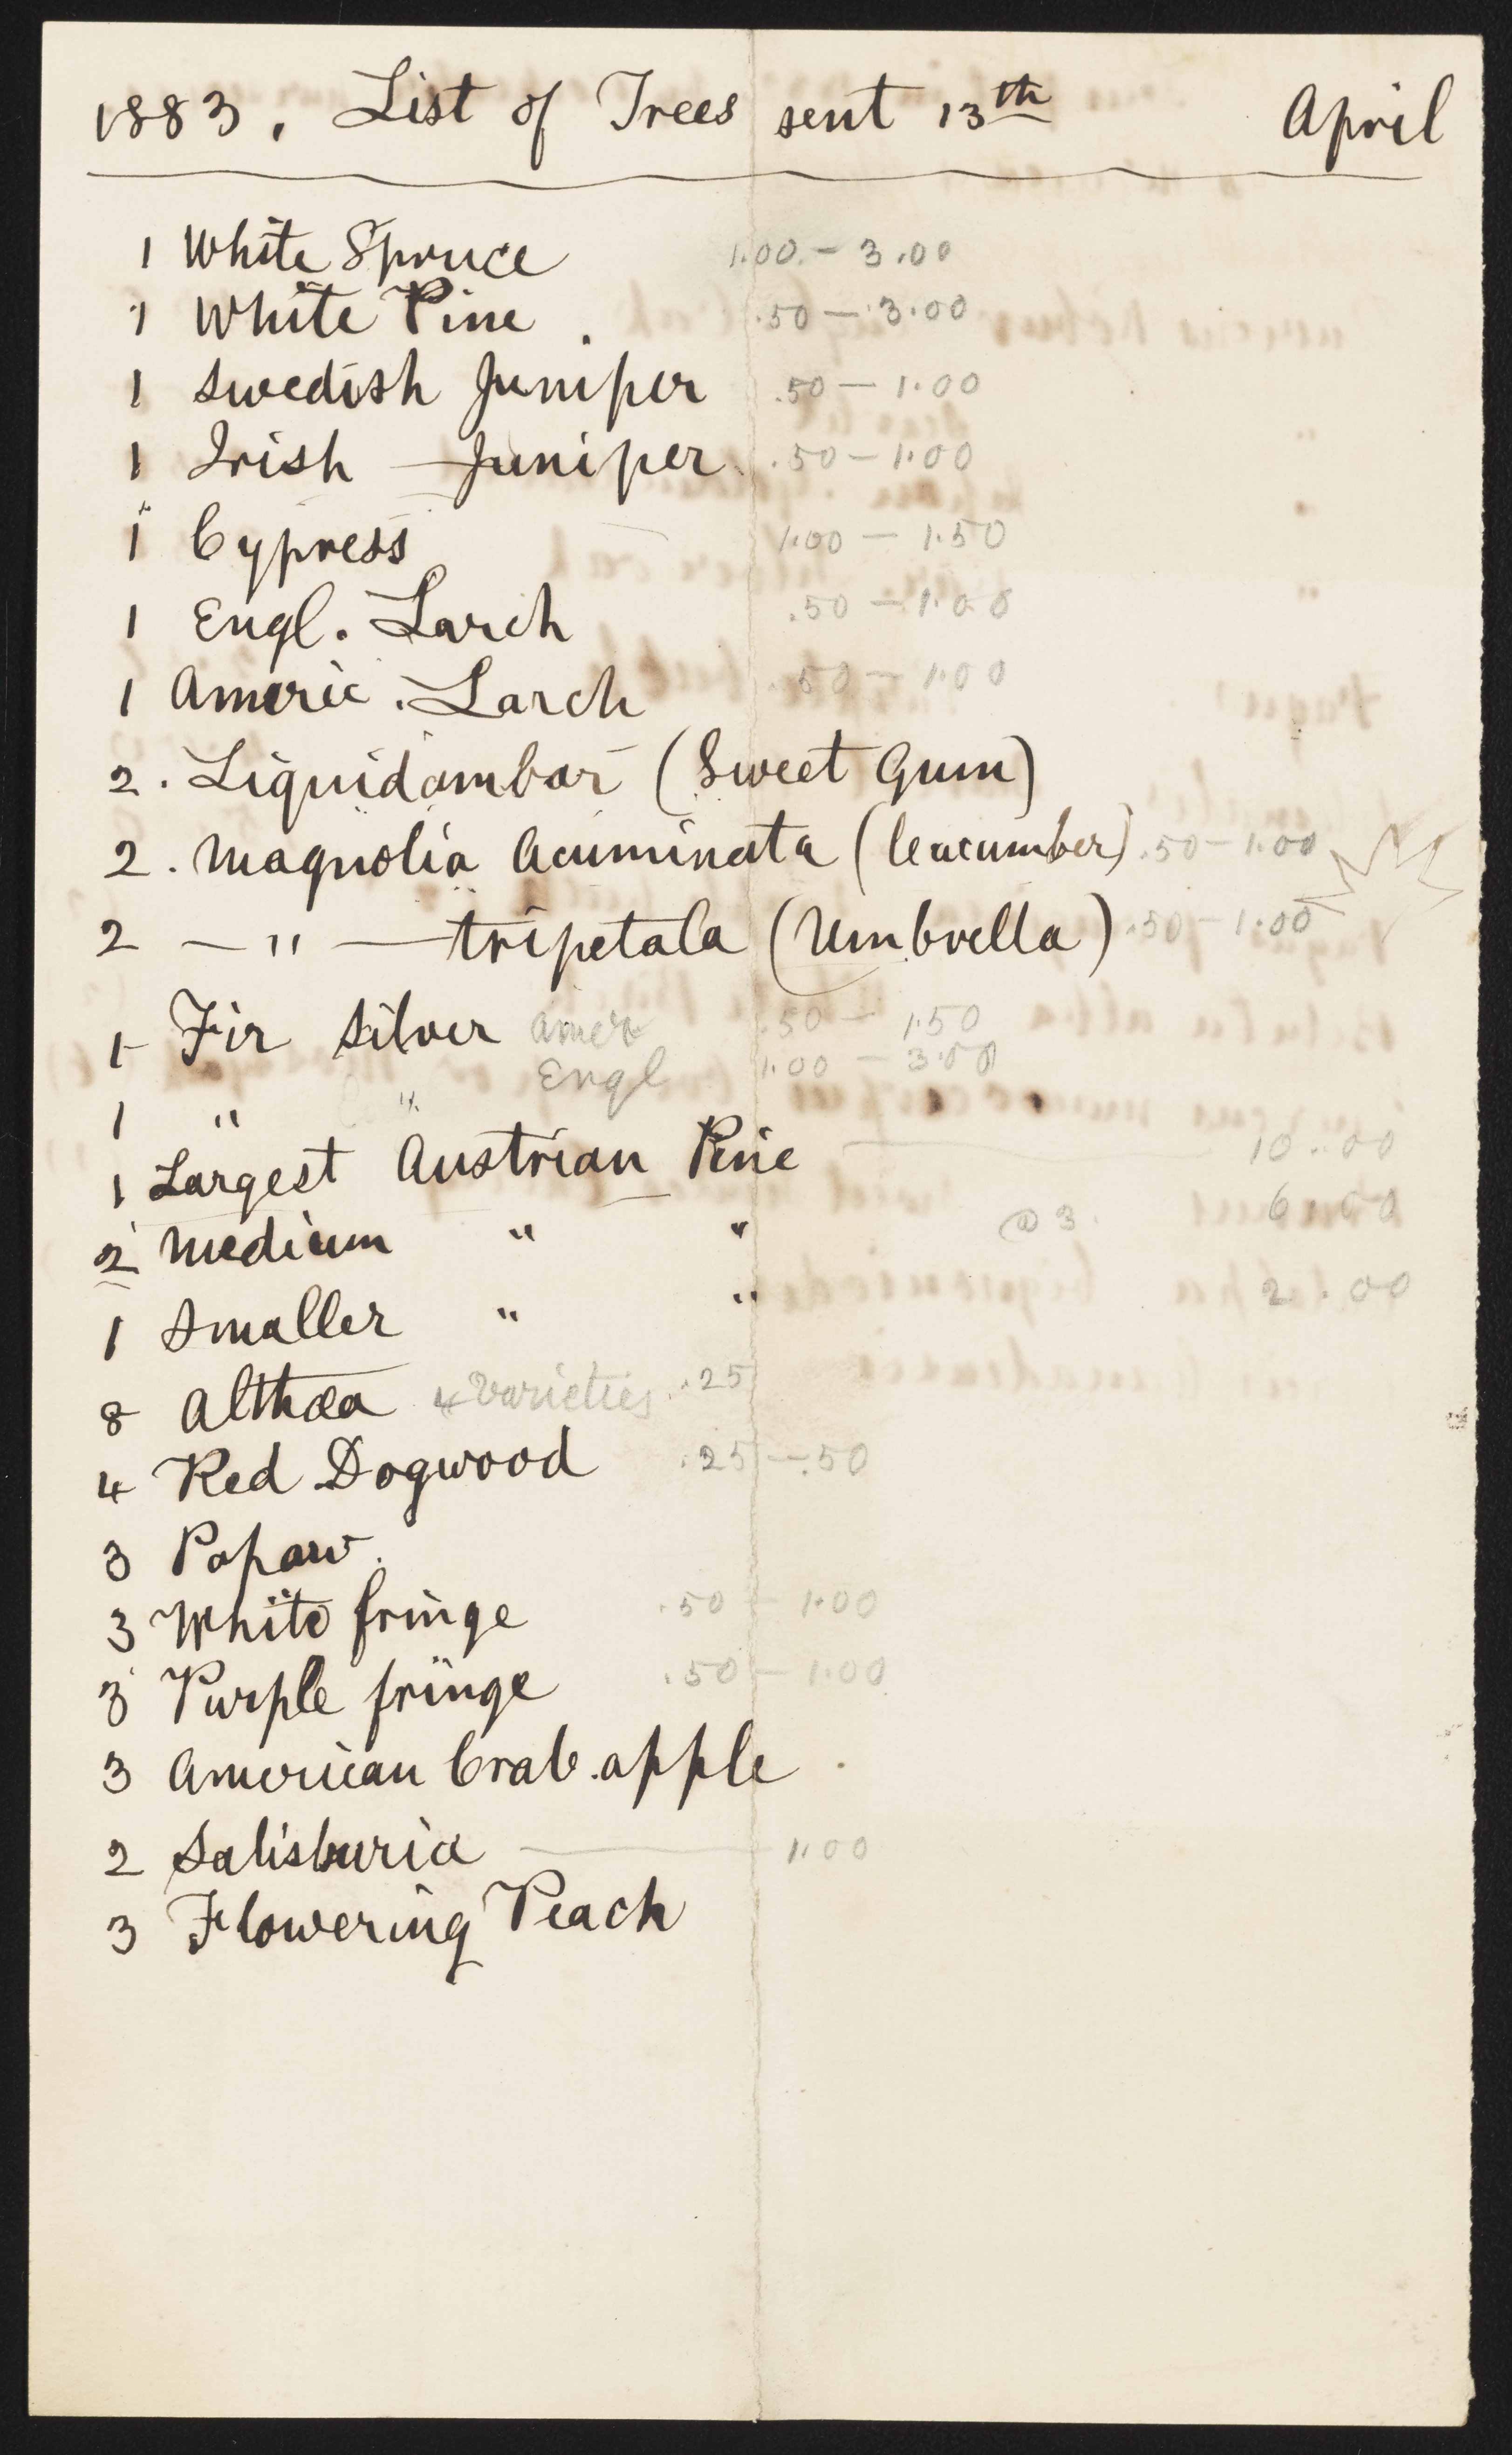 1883. List of Trees sent 13th April
1 White Spruce 1.00. – 3.00
1 White Pine .50 – 3.00
1 Swedish Juniper .50 – 1.00
1 Irish — Juniper .50 – 1.00
1 Cypress 1.00 – 1.50
1 Engl. Larch .50 – 1.00
1 Americ. Larch .50 – 1.00
2. Liquidambar (Sweet Gum)
2. Magnolia Acuminata (Ceucumber) .50 – 1.00
2 — " — tripetala (Umbrella) .50 – 1.00
1 – Fir Silver Amer .50 – 1.50
1 " " Engl 1.00 – 3.00
1 Largest Austrian Pine — 10.00
2 Medium " " @ 3. 6.00
1 Smaller " " 2.00
8 Althæa 4 Varieties .25
4 Red Dogwood .25 – .50
3 Papaw.
3 White fringe .50 – 1.00
3 Purple fringe .50 – 1.00
3 American Crab.apple
2 Salisburia — 1.00
3 Flowering Peach